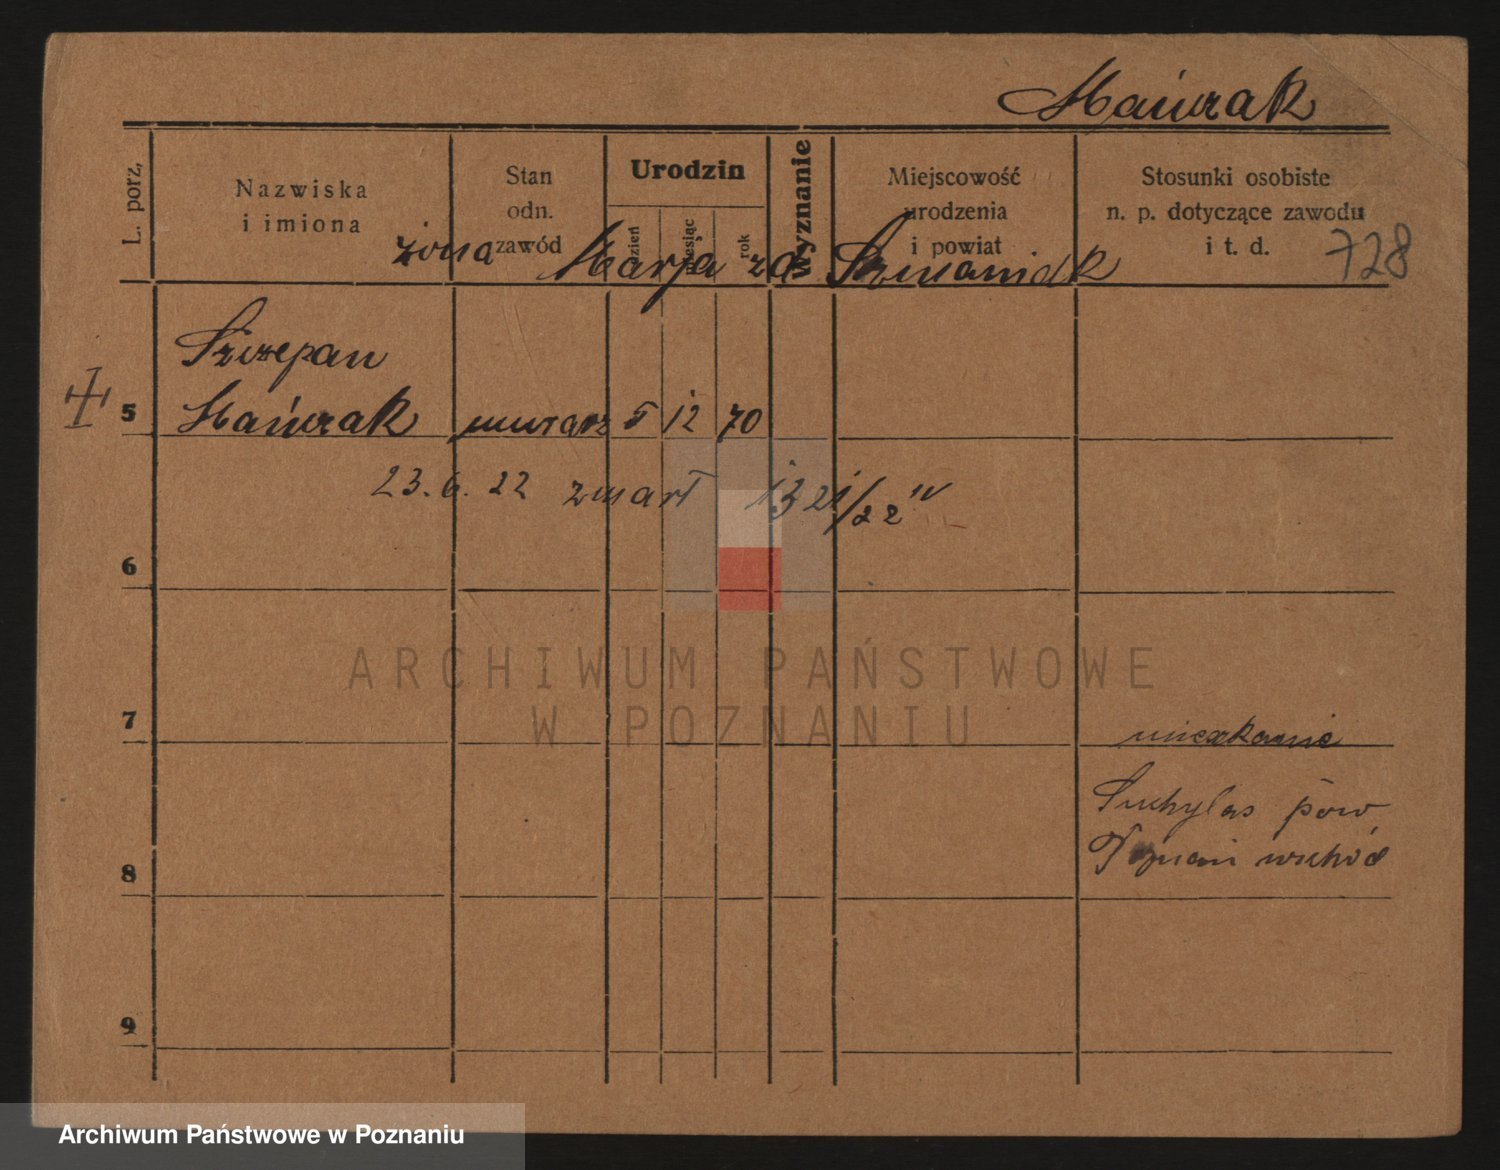 Mańczak
L. porz.
Nazwiska
i imiona
Stan
odn.
zawód
Urodzin
dzień
miesiąc
rok
Wyznanie
Miejscowość
urodzenia
i powiat
Stosunki osobiste
n. p. dotyczące zawodu
i t. d.
728
żona Marja zd
Szczepan
5 Mańczak murarz 5 12 70
23. 6. 22 zmarł 1321/22 IV
6
7
mieszkanie
Suchylas pow
Poznań wschód
8
9
ARCHIWUM PAŃSTWOWE
W POZNANIU
Archiwum Państwowe w Poznaniu